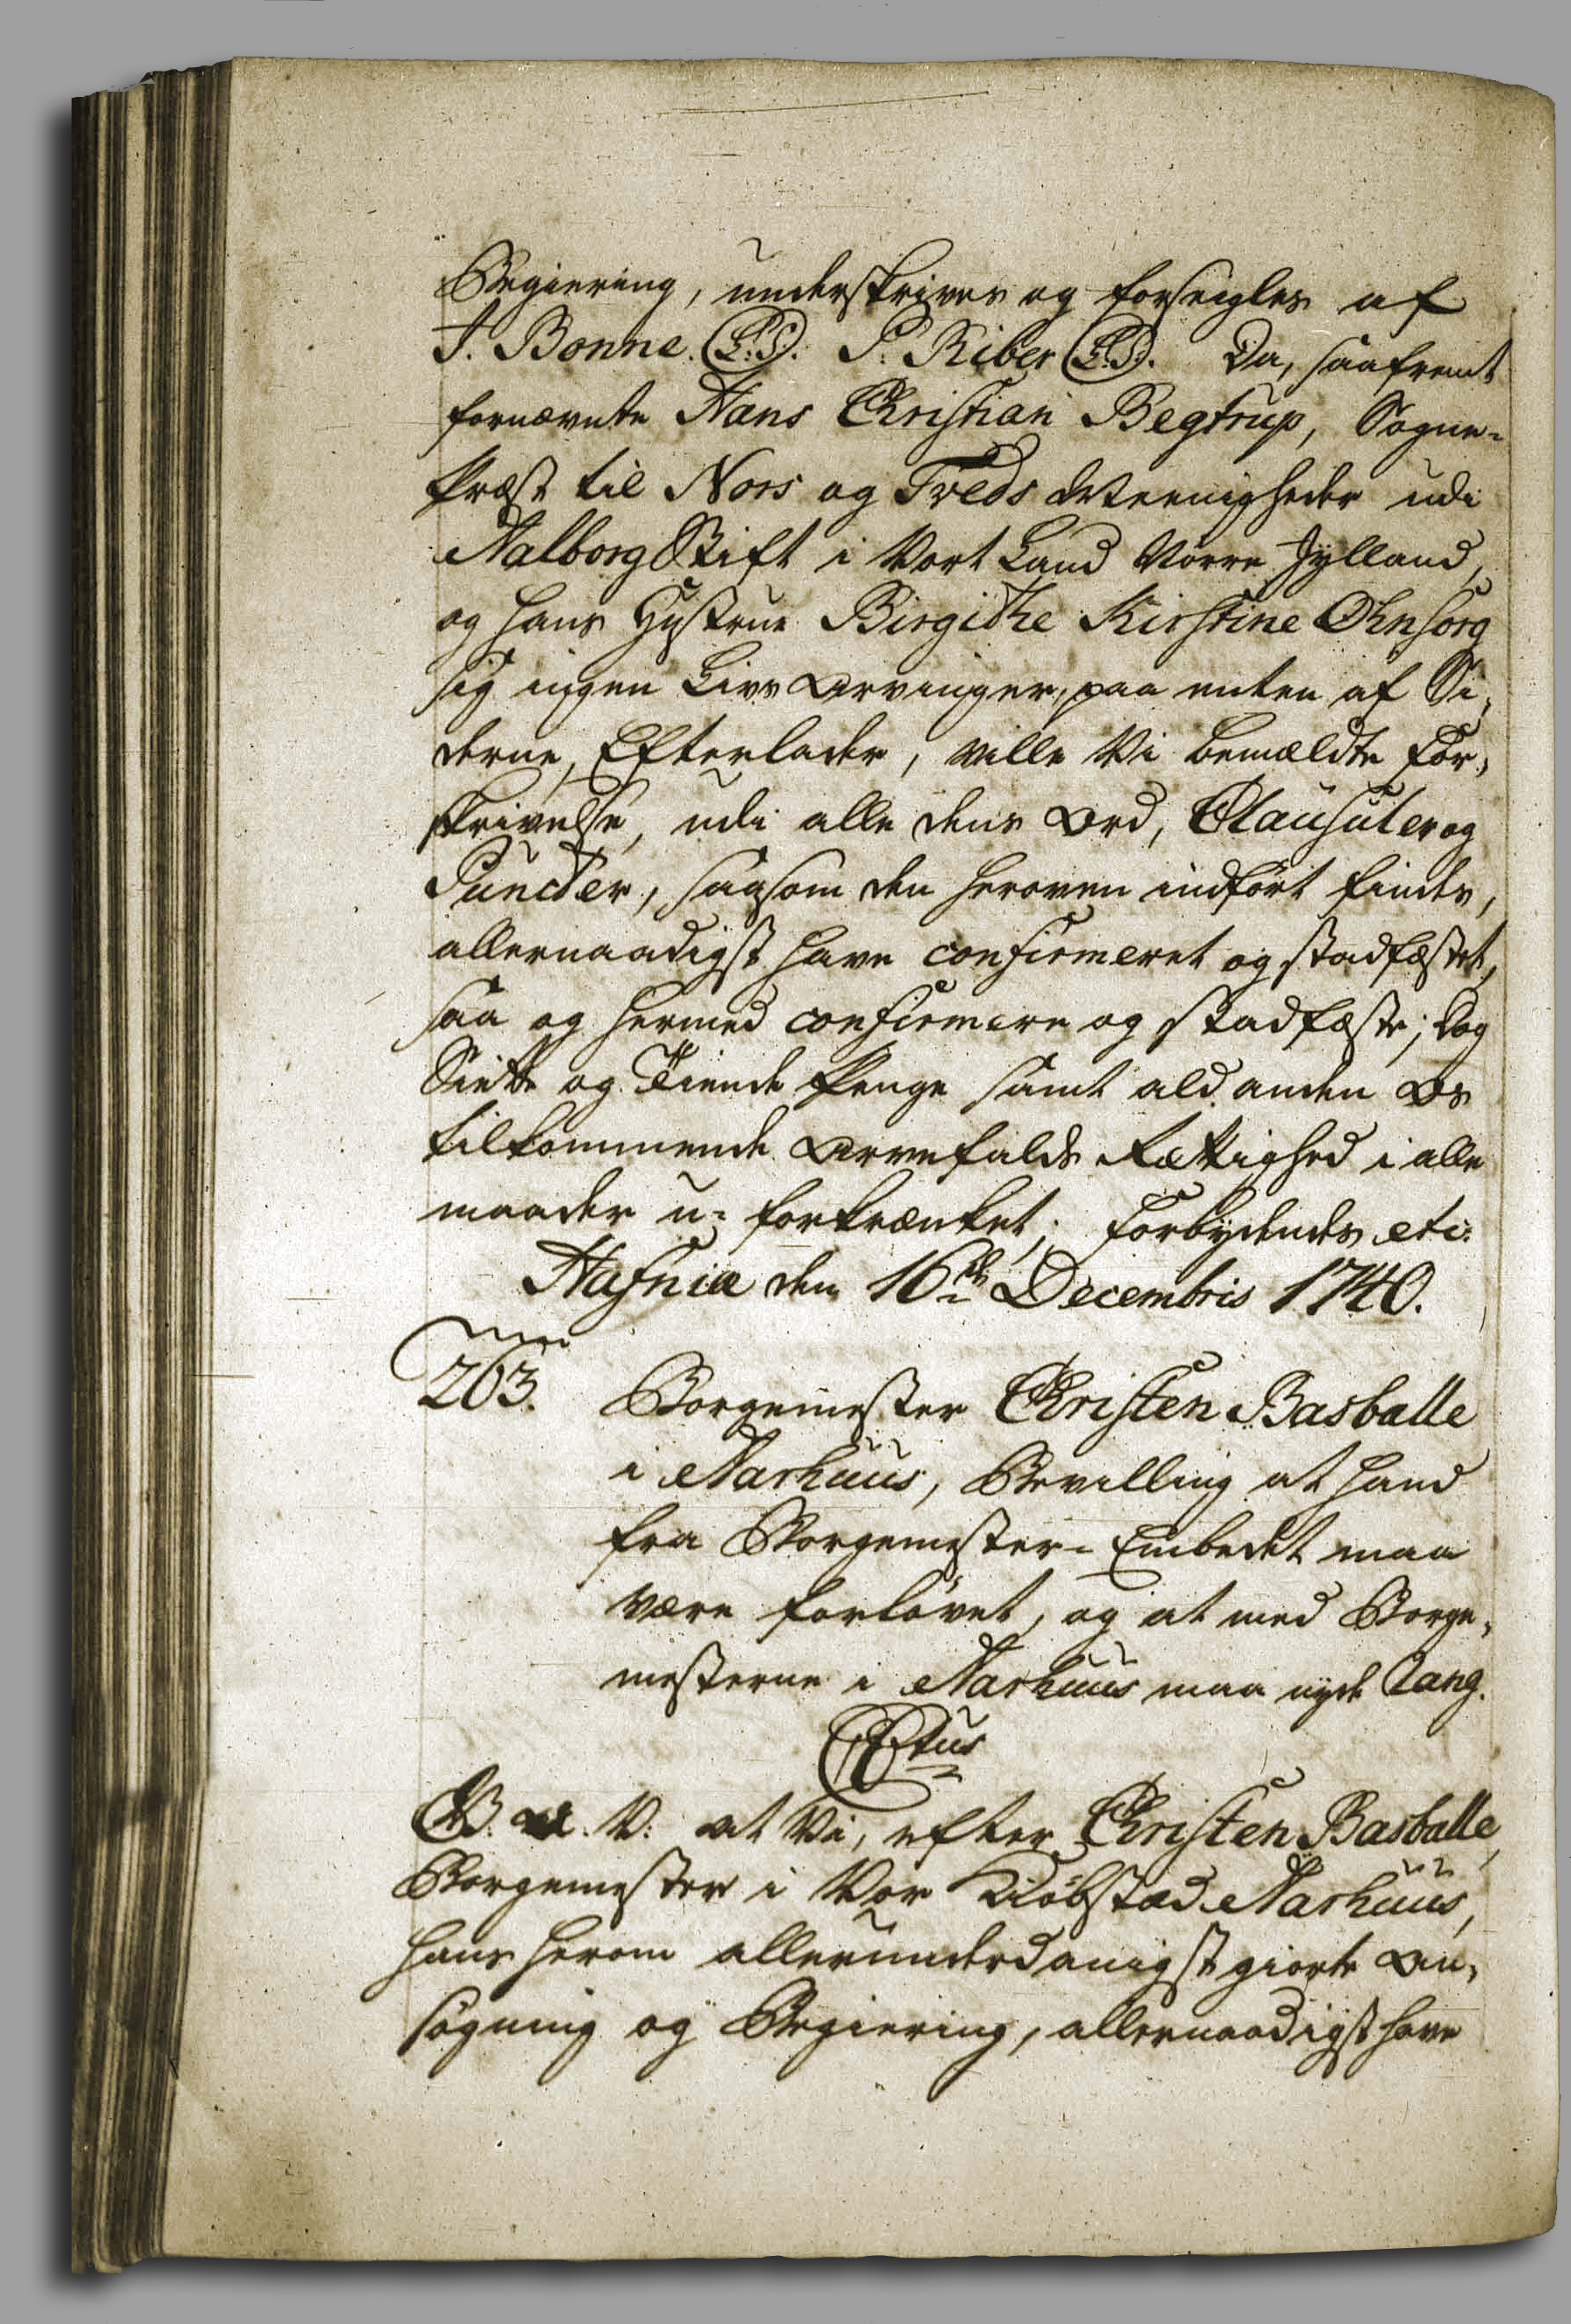 Begiering, underskrives og forseigles af
J. Bonne. (L.S.). P. Riber (L.S.). Da, saafremt
fornævnte Hans Christian Begtrup, Sogne-
Præst til Nors og Tveds Meenigheder udi
Aalborg Stift i Vort Land Nørre Jylland,
og hans Hustrue Birgithe Kirstine Ohnsorg
sig ingen Livs Arvinger, paa enten af Si-
derne, Efterlader, ville Vi bemældte For-
skrivelse, udi alle dens Ord, Clausuler og
Puncter, saasom den heroven indført findes,
allernaadigst have confirmeret og stadfæstet,
saa og hermed confirmere og stadfæste; Dog
Siette og Tiende Penge samt ald anden Os
tilkommende Arvefalds Rættighed i alle
maader u-forkrænket; Forbydendes etc:
Hafniæ den 16de Decembris 1740.
263. Borgemester Christen Basballe
i Aarhuus, Bevilling at hand
fra Borgemester-Embedet maa
være forløvet, og at med Borge-
mesterne i Aarhuus maa nyde Rang.
C6tus
G. A. V: at Vi, efter Christen Basballe,
Borgemester i Vor Kiøbstæd Aarhuus,
hans herom allerunderdanigst giorte An-
søgning og Begiering, allernaadigst have